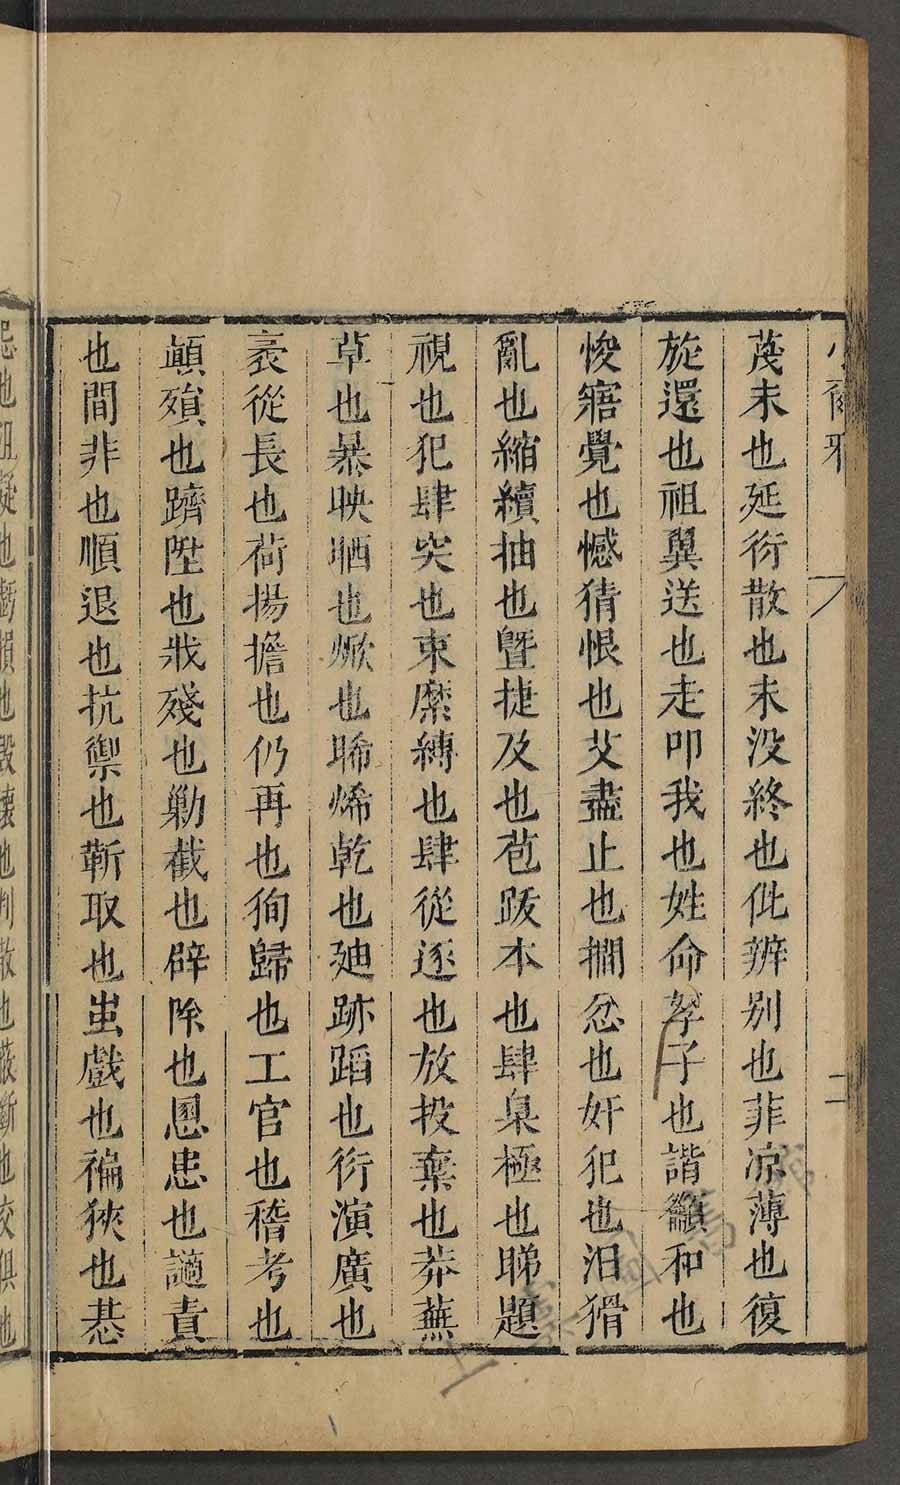 小爾雅 二
蔑末也延衍散也末没終也仳辨别也菲凉薄也復
旋還也祖翼送也走叩我也姓命孥子也諧籲和也
悛寤覺也憾猜恨也艾盡止也撊忿也奸犯也汨猾
亂也縮續抽也曁捷及也苞跋本也肆臬極也睇題
視也犯肆突也束縻縛也肆從逐也放投棄也莽蕪
草也暴映晒也焮也晞烯乾也廸跡蹈也衍演廣也
袤從長也荷揚擔也仍再也徇歸也工官也稽考也
顛殞也躋陞也戕殘也勦截也辟除也慁患也讁責
也間非也順退也抗禦也蘄取也蚩戲也褊狹也惎
忌也沮疑也虧損也毀壞也判散也 斷也交俱也